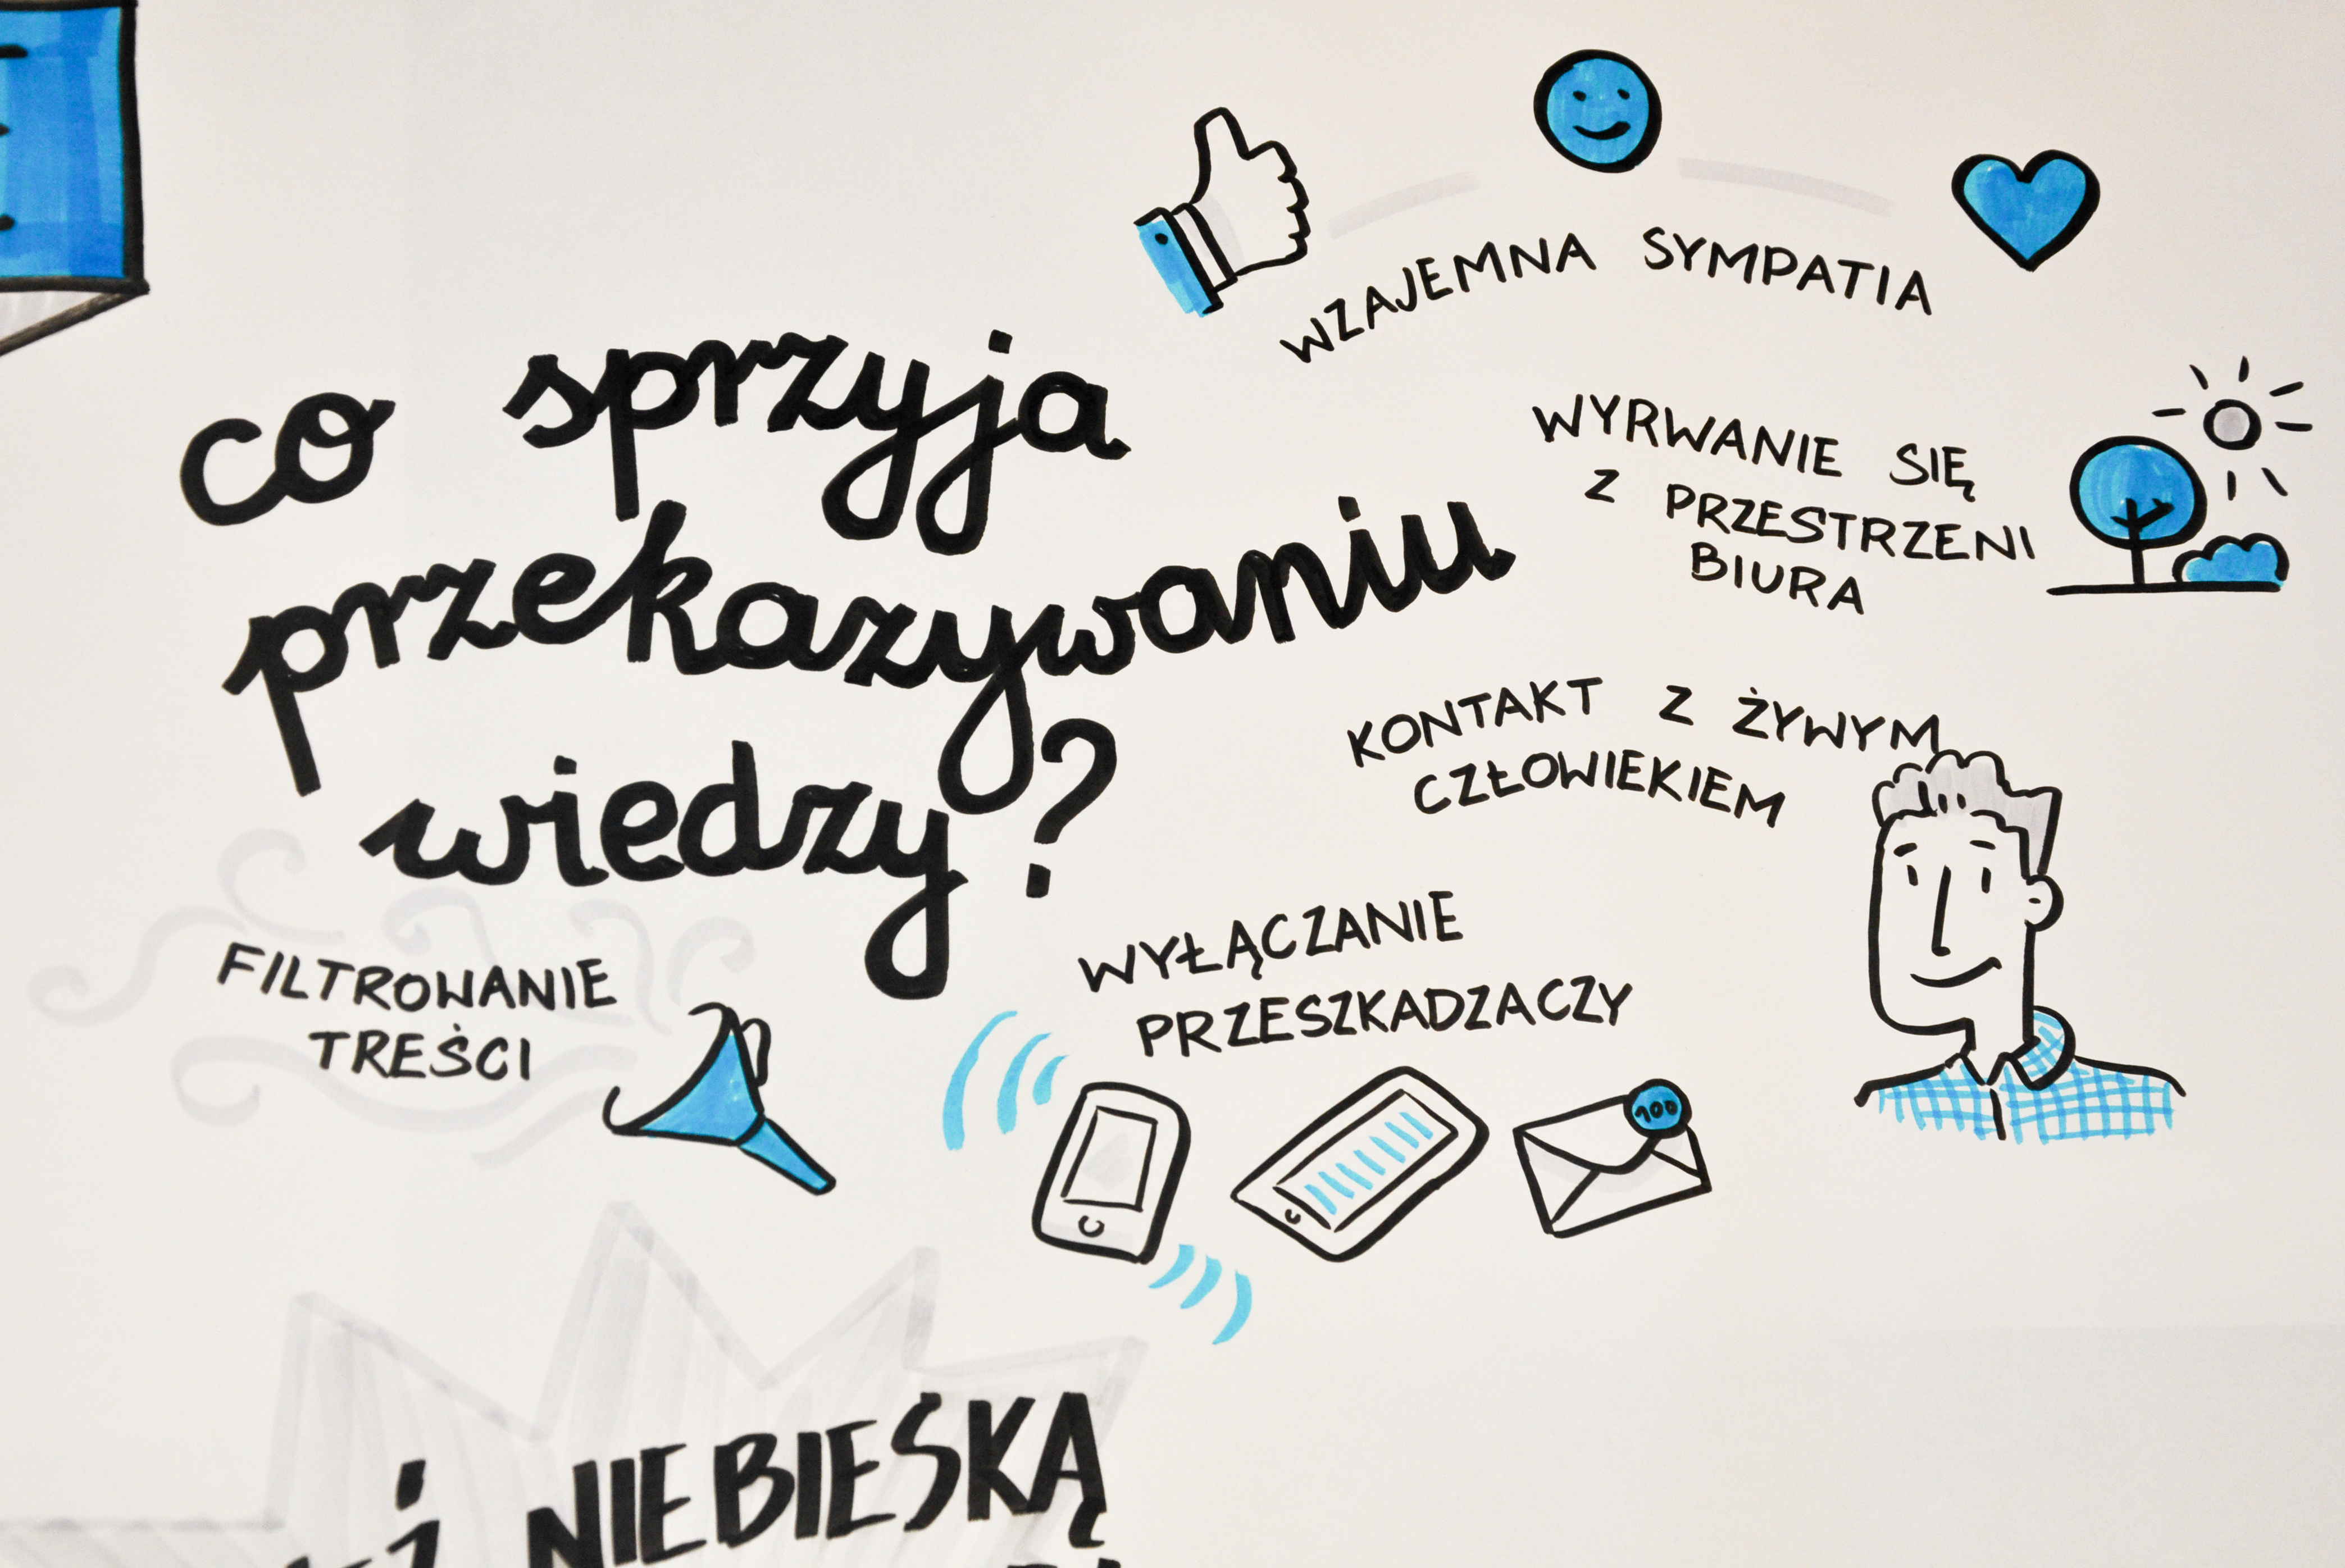 co sprzyja
przekazywaniu
wiedzy?
WZAJEMNA SYMPATIA
WYRWANIE SIĘ
Z PRZESTRZENI
BIURA
KONTAKT Z ŻYWYM
CZŁOWIEKIEM
WYŁĄCZANIE
PRZESZKADZACZY
100
FILTROWANIE
TREŚCI
i NIEBIESKĄ